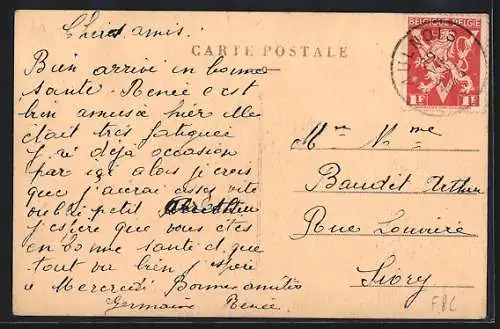 Chers amis.
CARTE POSTALE
BELGIQUE-BELGIE
1F 1F
Bien arrivé en bonne
santé. Renée c'est
bien amusée hier elle
était très fatiguée
j'ai déjà occasion
par ici alors je crois
que j'aurai assez vite
oublié petit
j'espère que vous êtes
en bonne santé et que
tout va bien j'espère
a Mercredi Bonnes amitiés
Germaine Renée
Mr Mme
Baudit Arthur
Rue Louvière
Sivry